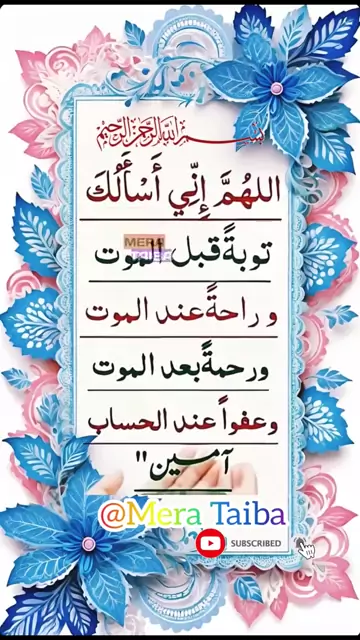 بسم الله الرحمن الرحيم
اللهُمَّ إِنِّي أَسْأَلُكَ
توبةً قبل الموت
MERA
TAIBA
و راحةً عند الموت
ورحمةً بعد الموت
وعفواً عند الحساب
آمين"
@Mera Taiba
SUBSCRIBED